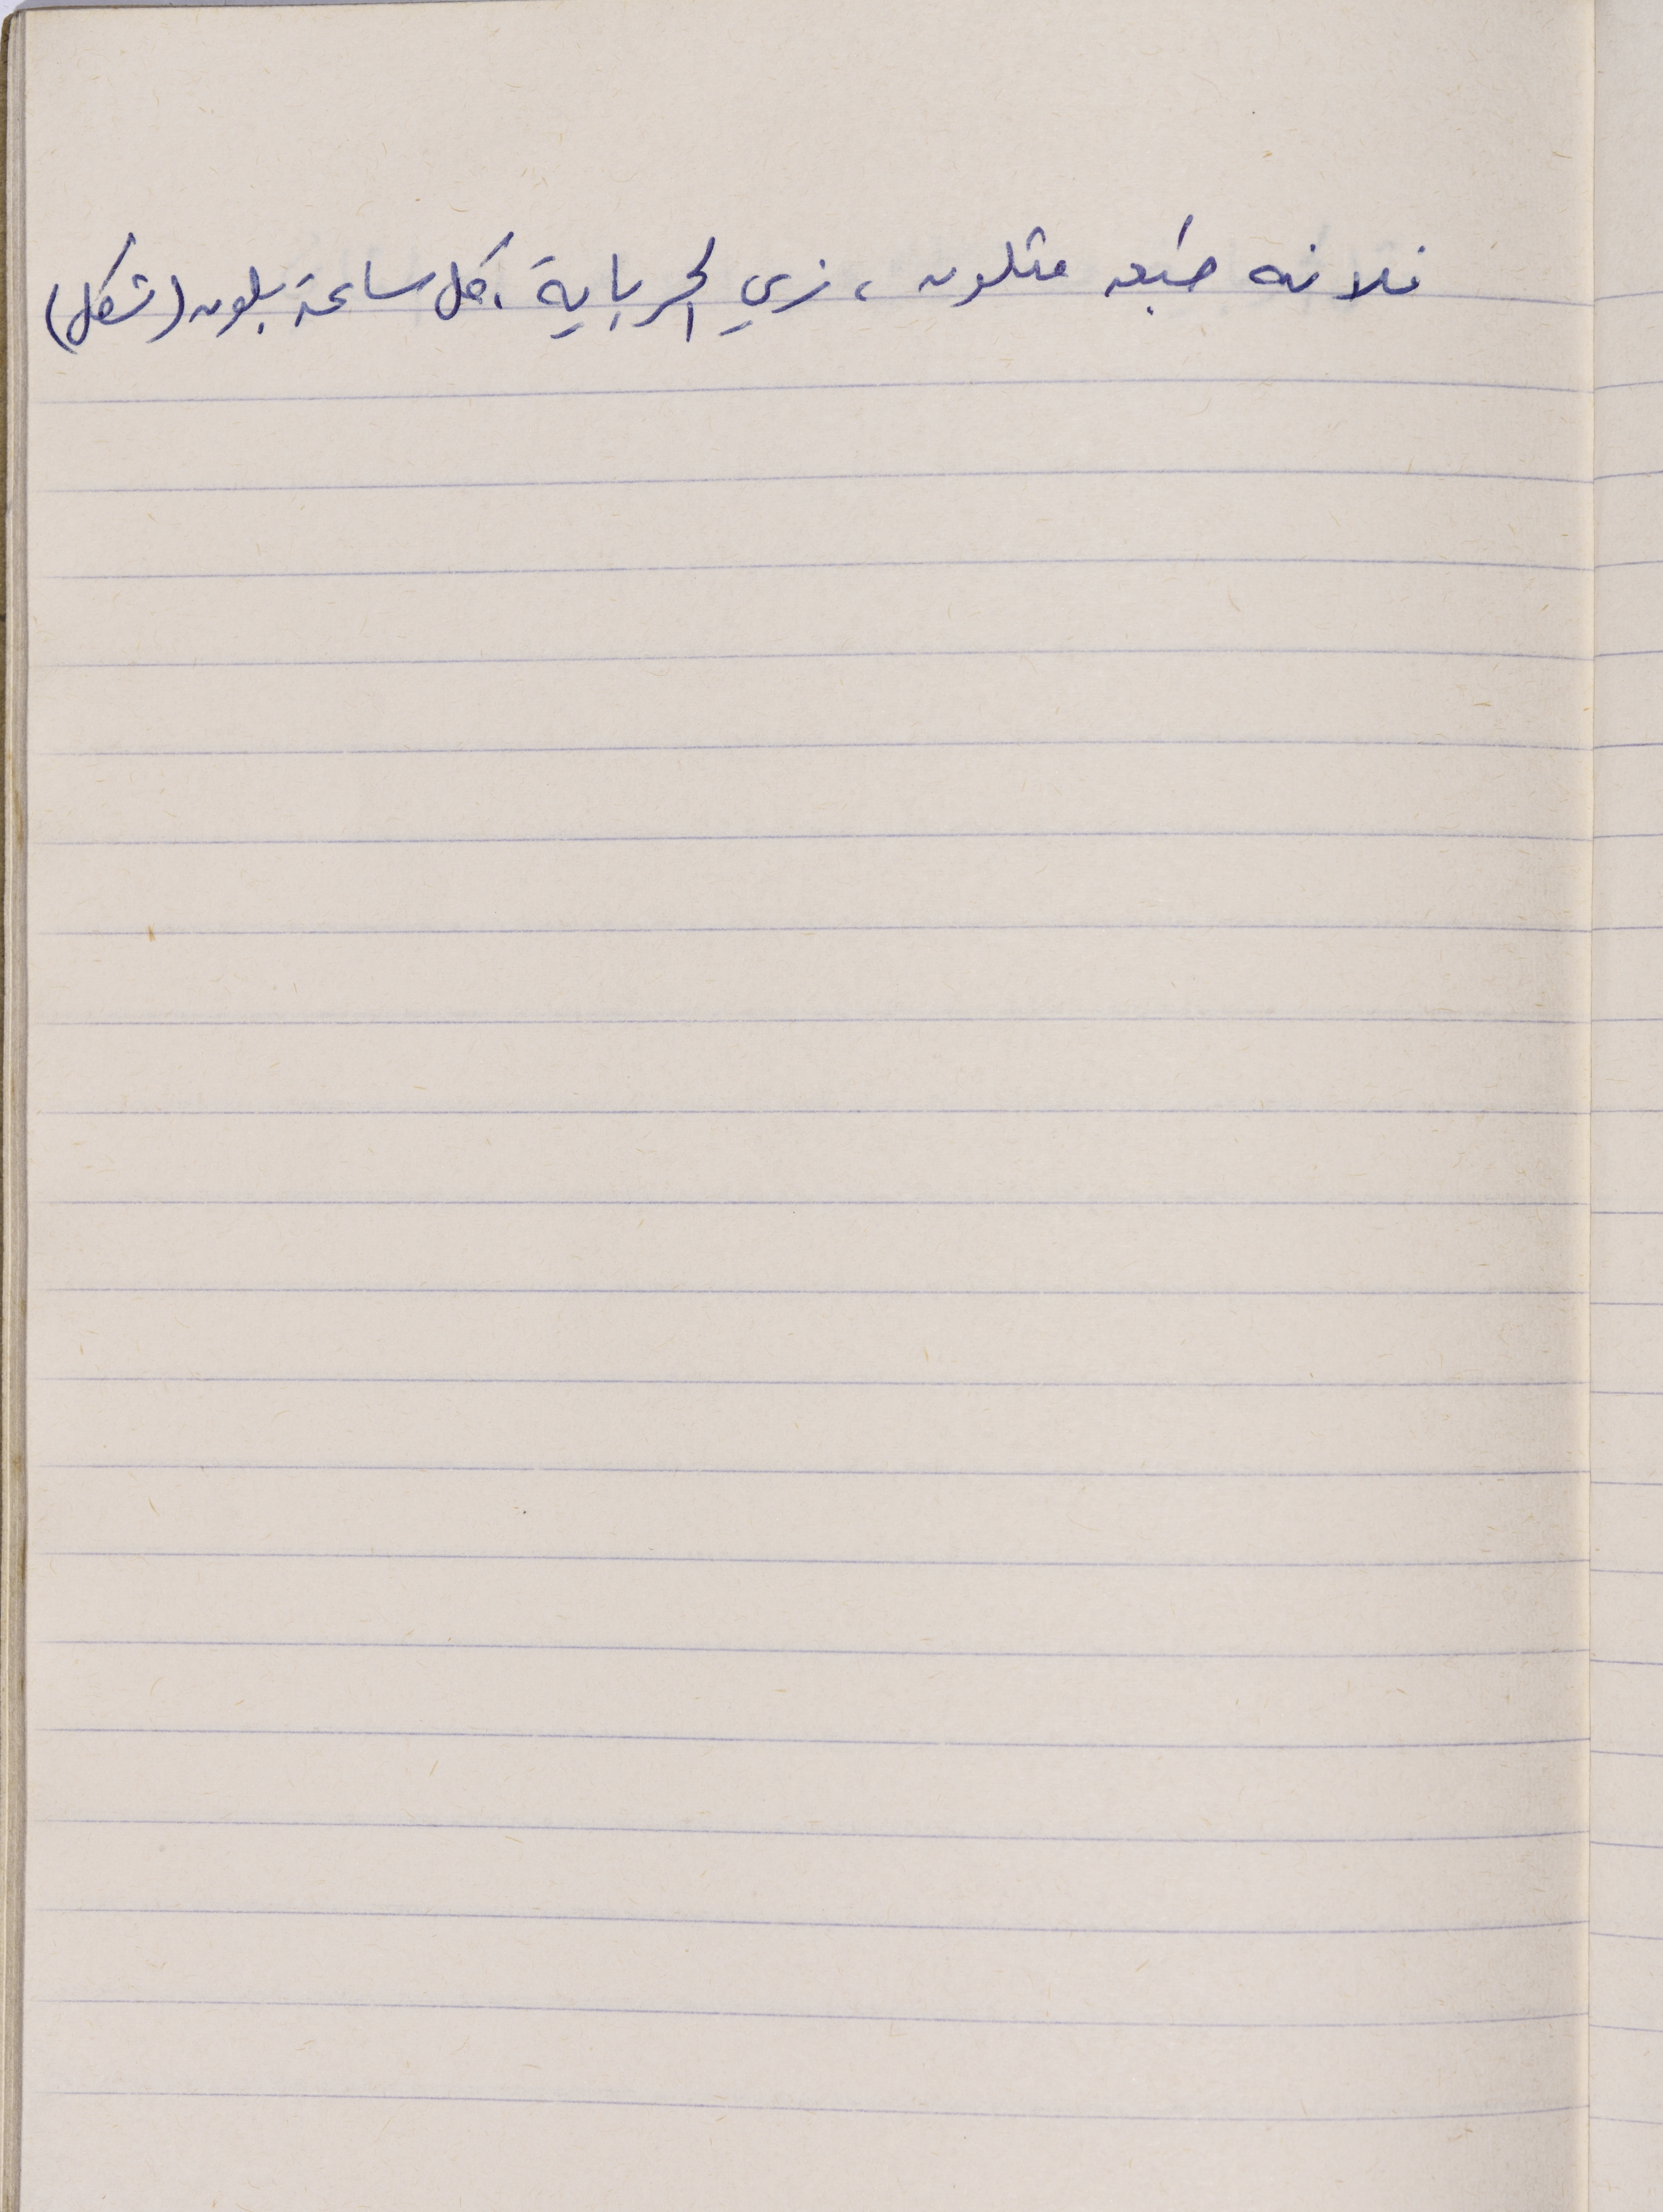 فلانه طبعه متلون، زي الحرباية، كل ساعة بلون (شكل)